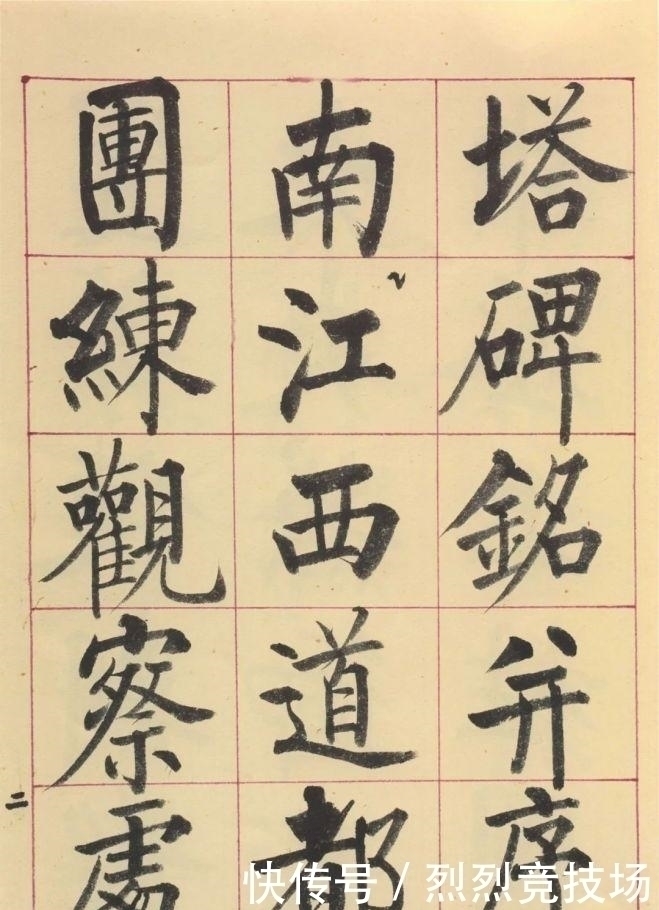 塔碑銘并序
南江西道都
團練觀察處
二
快传号/烈烈竞技场